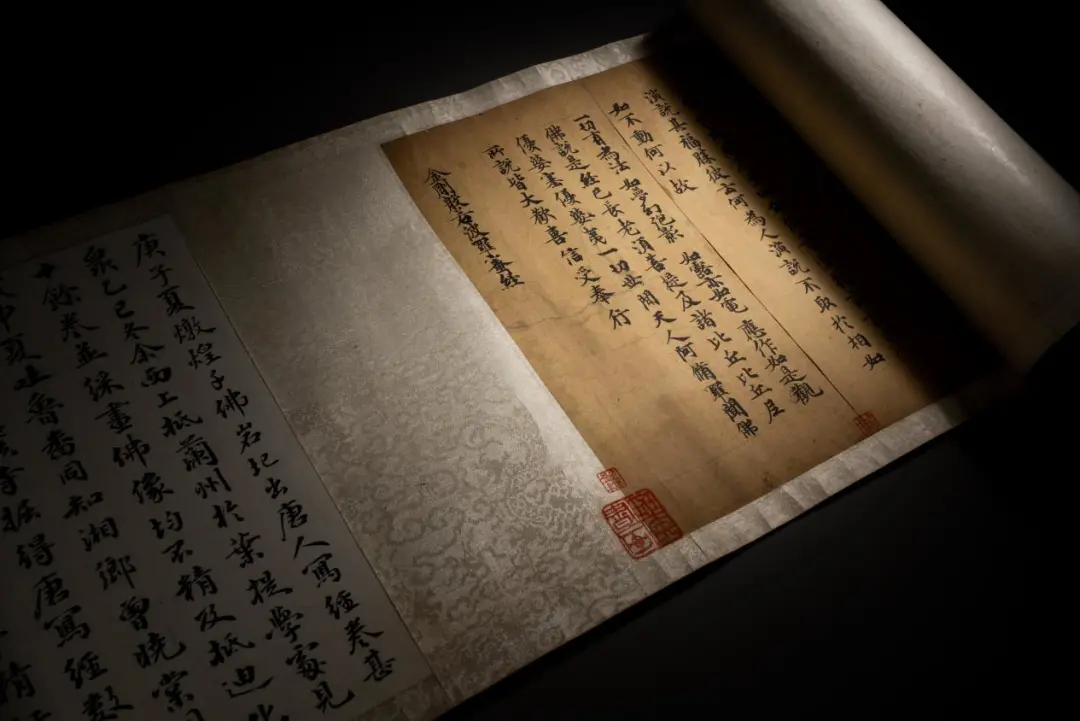 演說其福勝彼云何為人演說不取於相如
如不動何以故
一切有為法 如夢幻泡影 如露亦如電 應作如是觀
佛說是經已長老須菩提及諸比丘比丘尼
優婆塞優婆夷一切世間天人阿脩羅聞佛
所說皆大歡喜信受奉行
金剛般若波羅蜜經
庚子夏燉煌千佛岩圮出唐人寫經卷甚
衆己巳冬余西上抵蘭州於葉提學處見
十餘卷並綵畫佛像均不精及抵迪化
申夏吐魯番同知湘鄉曾曉棠
掘得唐寫經數
精